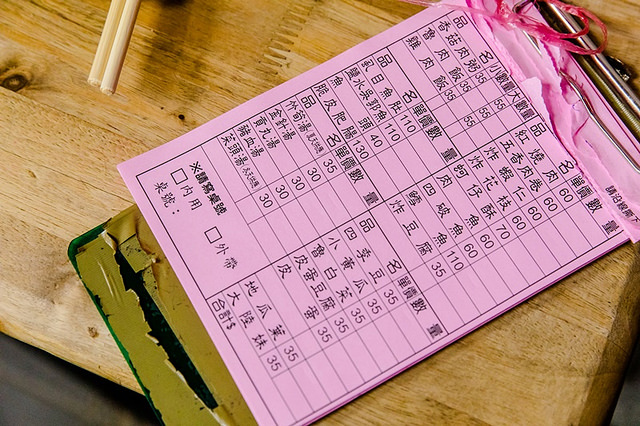 品名 小 數量 大 數量
香菇肉粥 35 55
魯肉飯 35 55
雞肉飯 35 55
品名 單價 數量
虱目魚肚 110
鹽水吳郭魚 110
魚頭 40
脆皮肥腸 130
品名 單價 數量
筍湯 35
金針湯 30
貢丸湯 30
豬血湯 30
菜頭湯 30
※請寫桌號
□內用 □外帶
桌號：
品名 單價 數量
紅燒肉 60
五香肉卷 60
炸蝦仁 60
炸花枝 60
蚵仔酥 70
肉魚 60
四破魚 60
鱈魚 110
炸豆腐 35
品名 單價 數量
四季豆 35
小黃瓜 35
魯白菜 35
皮蛋豆腐 35
皮蛋 35
地瓜葉 35
大陸妹 35
合計$